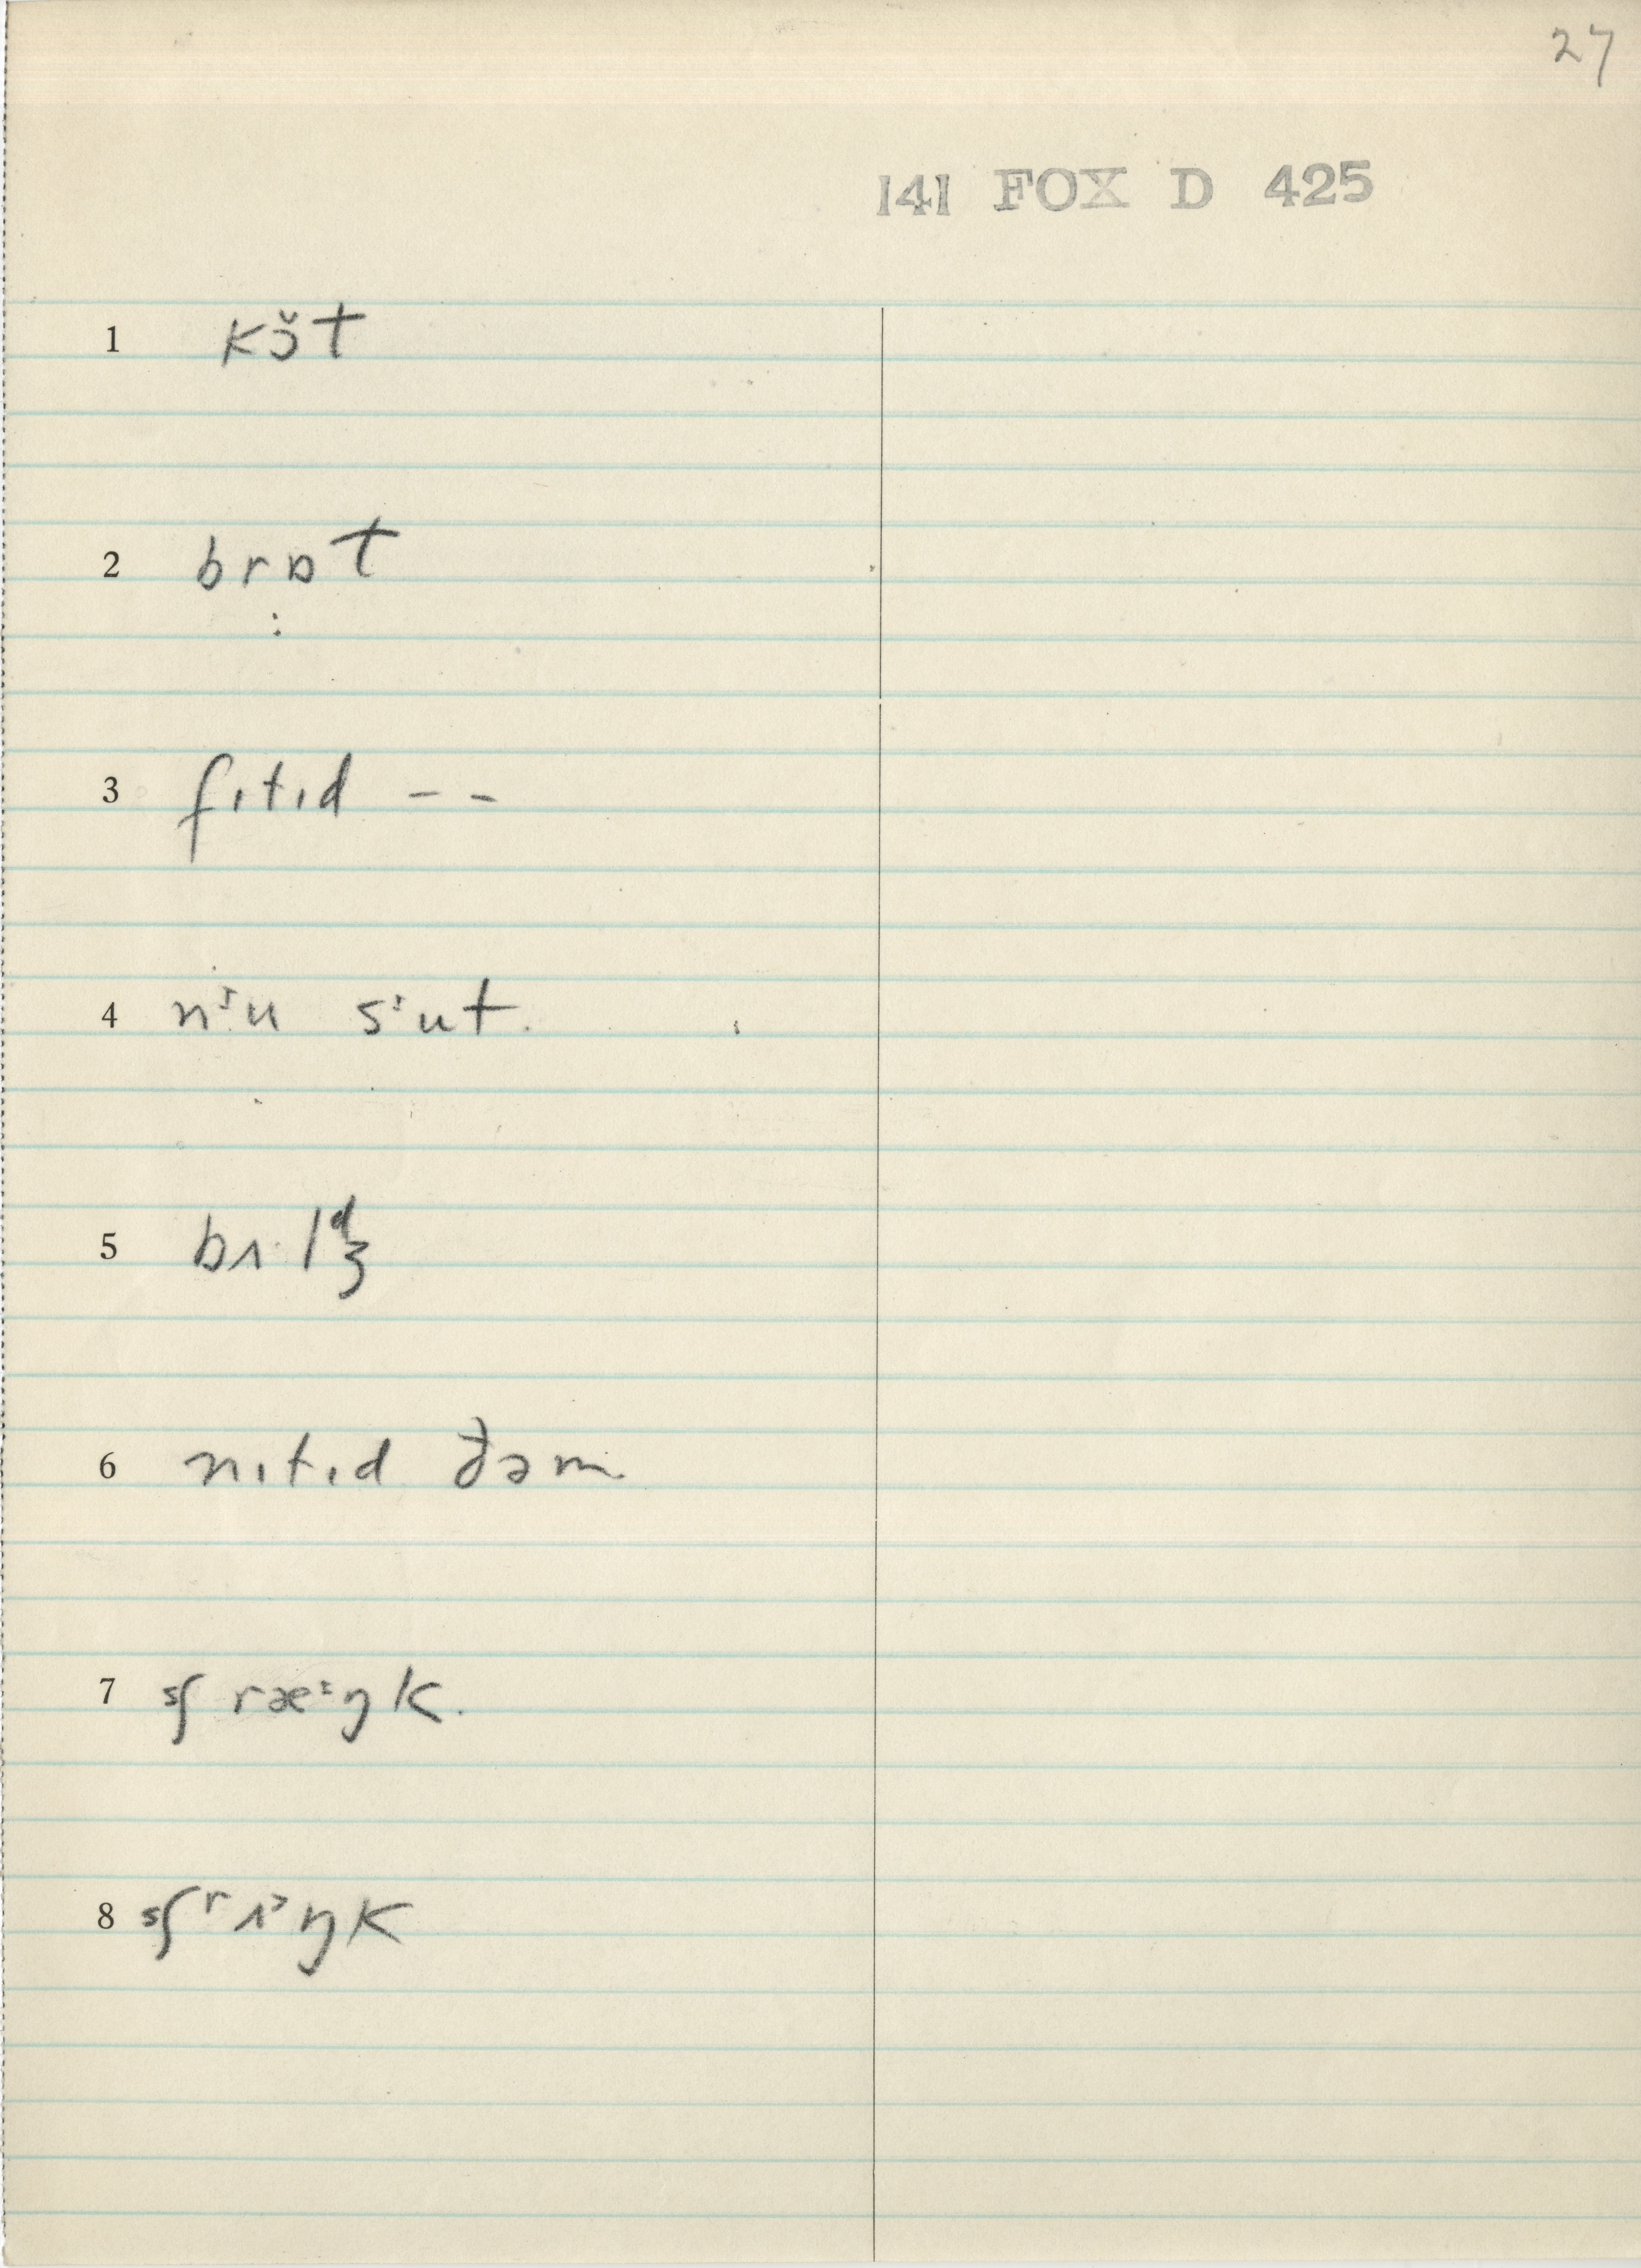 27
141 FOX D 425
1 kɔ̆t
2 brɒt
:
3 fɪtɪd - -
4 nᶤ:u sᶤut.
5 bʌ·lᵈʒ
6 nɪtɪd ðəm
7 ˢʃ ræᶤŋk.
8 ˢʃʳʌᶦŋk